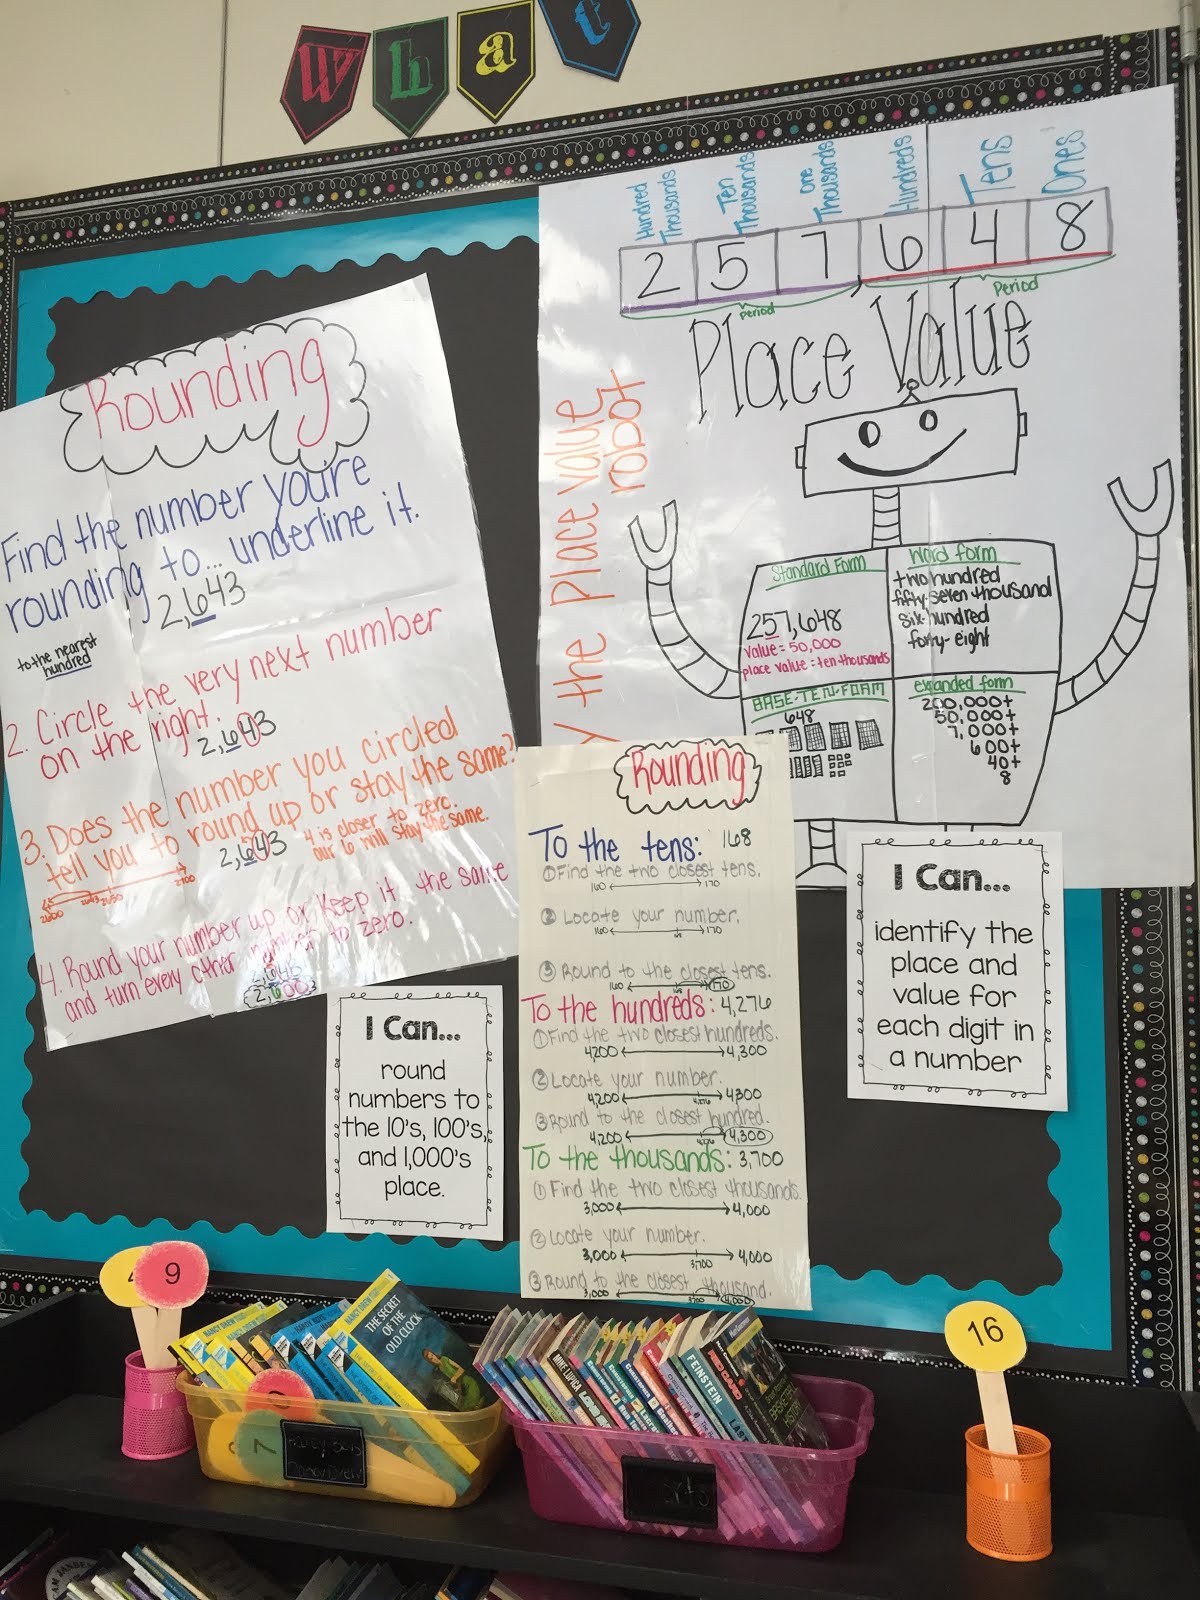 What
Rounding
Find the number you're
rounding to... underline it.
2,643
to the nearest
hundred
2. Circle the very next number
on the right.
2,643
3. Does the number you circled
tell you to round up or stay the same?
2,643
4 is closer to zero.
our 6 will stay the same.
2600 2643 2650 2700
4. Round your number up or keep it the same
and turn every other number to zero.
2,643
2,600
Hundred
Thousands
Ten
Thousands
One
Thousands
Hundreds
Tens
Ones
2 5 7, 6 4 8
Period
Period
Place Value
the place value
robot
Standard Form
257,648
value = 50,000
place value = ten-thousands
Word form
two hundred
fifty-seven thousand
six-hundred
forty-eight
BASE-TEN-FORM
648
expanded form
200,000+
50,000+
7,000+
600+
40+
8
Rounding
To the tens: 168
① Find the two closest tens.
160 170
② Locate your number.
160 168 170
③ Round to the closest tens.
160 168 170
To the hundreds: 4,276
① Find the two closest hundreds.
4200 4,300
② Locate your number.
4,200 4,276 4300
③ Round to the closest hundred.
4,200 4,276 4,300
To the thousands: 3,700
① Find the two closest thousands.
3,000 4,000
② Locate your number.
3,000 3,700 4,000
③ Round to the closest thousand.
3,000 3700 4,000
I Can...
round
numbers to
the 10's, 100's,
and 1,000's
place.
I Can...
identify the
place and
value for
each digit in
a number
4
9
16
7
NANCY DREW
THE SECRET
OF THE
OLD CLOCK
Nancy Drew
MIKE LUPICA
FEINSTEIN
LAST